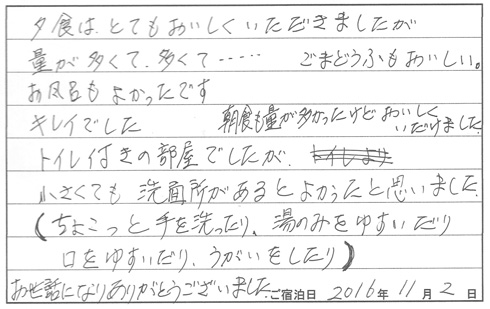 夕食は、とてもおいしくいただきましたが
量が多くて、多くて‥‥‥ ごまどうふもおいしい。
お風呂もよかったです
キレイでした 朝食も量が多かったけどおいしく
いただけました。
トイレ付きの部屋でしたが、トイレより
小さくても洗面所があるとよかったと思いました。
(ちょこっと手を洗ったり、湯のみをゆすいだり
口をゆすいだり、うがいをしたり)
お世話になりありがとうございました。ご宿泊日 2016年 11月 2日